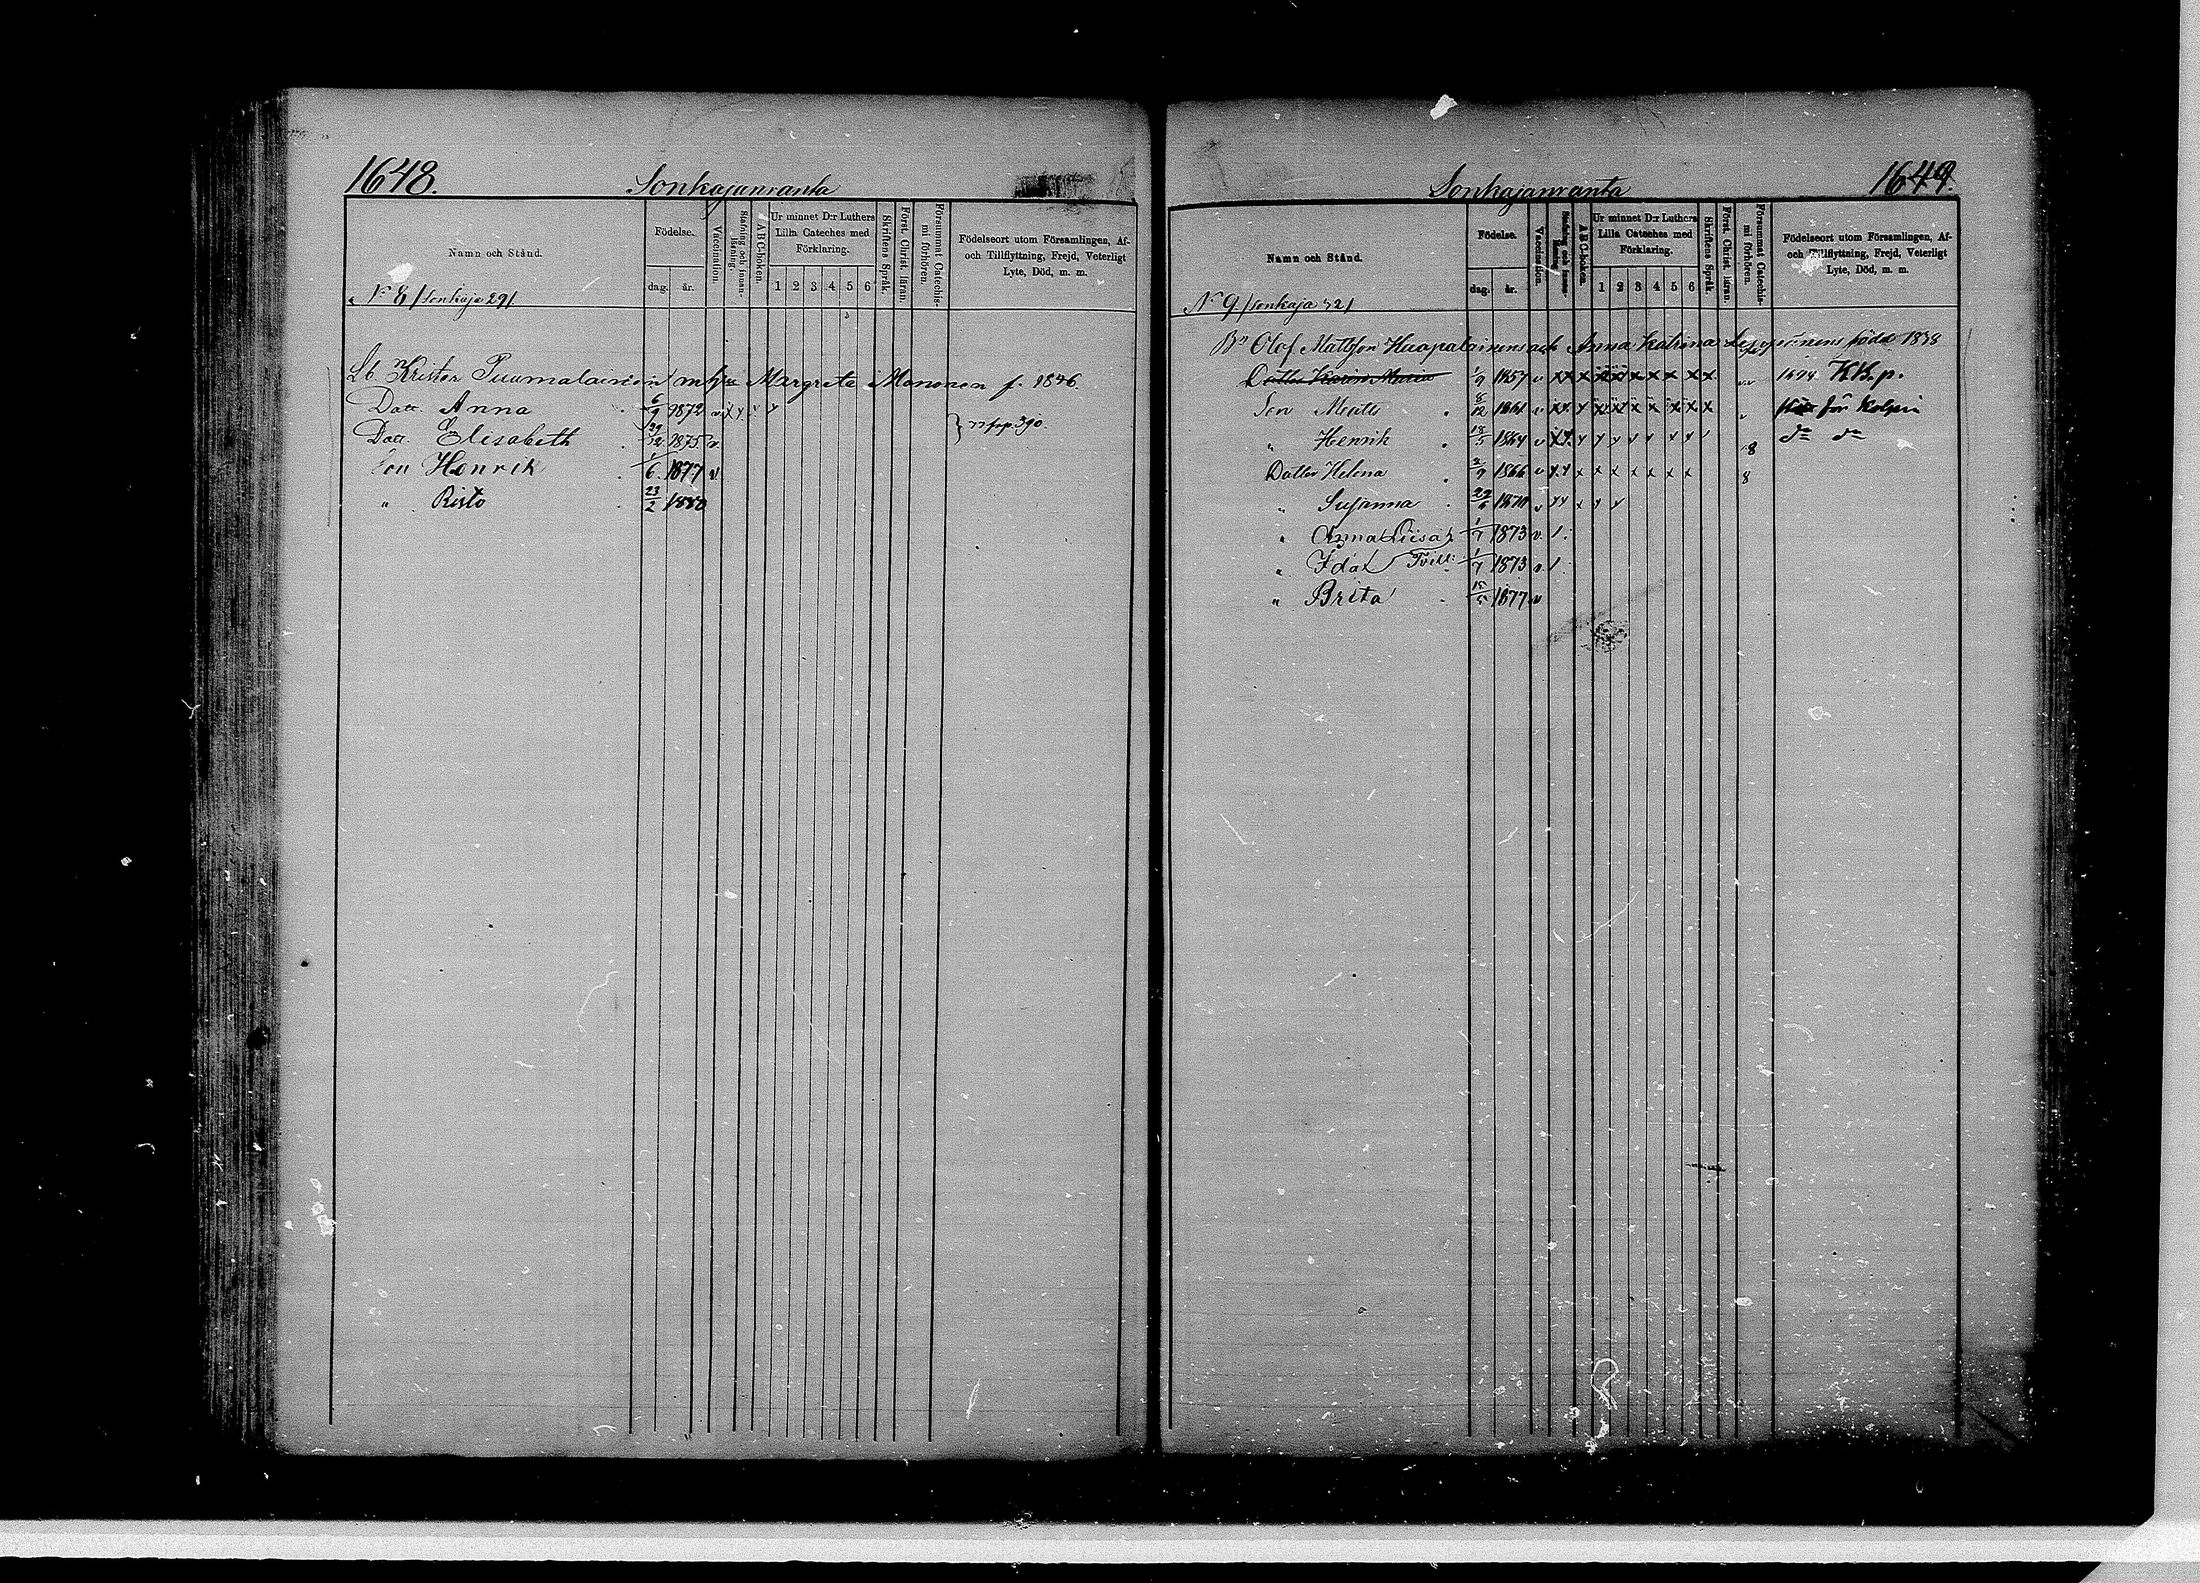 1648.
Sonkajanranta
Namn och Stånd.
Födelse.
dag.
år.
Vaccination.
Stafning och innan-
läsning.
ABC-boken.
Ur minnet D:r Luthers
Lilla Cateches med
Förklaring.
1 2 3 4 5 6
Skriftens Språk.
Först. Christ. läran.
Försummat Catechis-
mi förhören.
Födelseort utom Församlingen, Af-
och Tillflyttning, Frejd, Veterligt
Lyte, Död, m. m.
Nr 8 / Sonkaja 29 /
Lb. Krister Puumalainen m h:u Margreta Mononen f. 1846
Dott. Anna 6/9 1872 v x x
Dott. Elisabeth 29/12 1875 v.
Son Henrik 1/6 1877 v
" Risto 23/2 1880
} pp. 390.
Sonkajanranta
1649.
Namn och Stånd.
Födelse.
dag.
år.
Vaccination.
Stafning och innan-
läsning.
ABC-boken.
Ur minnet D:r Luthers
Lilla Cateches med
Förklaring.
1 2 3 4 5 6
Skriftens Språk.
Först. Christ. läran.
Försummat Catechis-
mi förhören.
Födelseort utom Församlingen, Af-
och Tillflyttning, Frejd, Veterligt
Lyte, Död, m. m.
Nr 9. / Sonkaja 32 /
Bn Olof Mattsson Huapalainen och Anna Katrina född 1838
Dotter Maria 1/9 1857 v x x x x x x x x x x x K.K.p.
Son Matts 8/12 1861 v x x x x x x x x x x x för
" Henrik 18/5 1864 v x x x x x x x x x 8 d:o d:o
Dotter Helena 2/9 1866 v x x x x x x x x x 8
" Susanna 22/5 1870 v x x x x x
" Anna Liisa 1/7 1873 v. /.
" Ida } Tvill: 1/7 1873 v. /
" Brita 15/5 1877 v